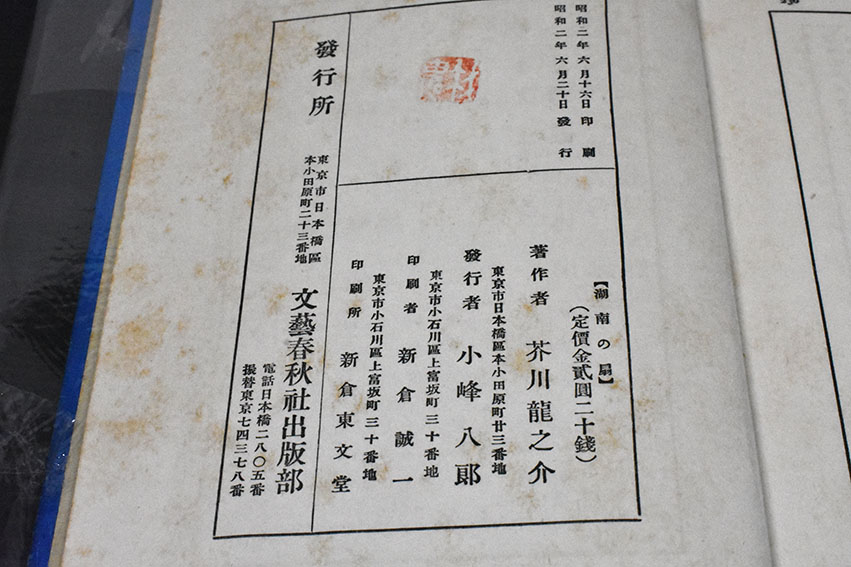 昭和二年六月十六日印刷
昭和二年六月二十日發行
【湖南の扇】
(定價金貳圓二十錢)
著作者 芥川龍之介
東京市日本橋區本小田原町廿三番地
發行者 小峰八郎
東京市小石川區上富坂町三十番地
印刷者 新倉誠一
東京市小石川區上富坂町三十番地
印刷所 新倉東文堂
發行所
東京市日本橋區
本小田原町二十三番地
文藝春秋社出版部
電話日本橋二八〇五番
振替東京七四三七八番